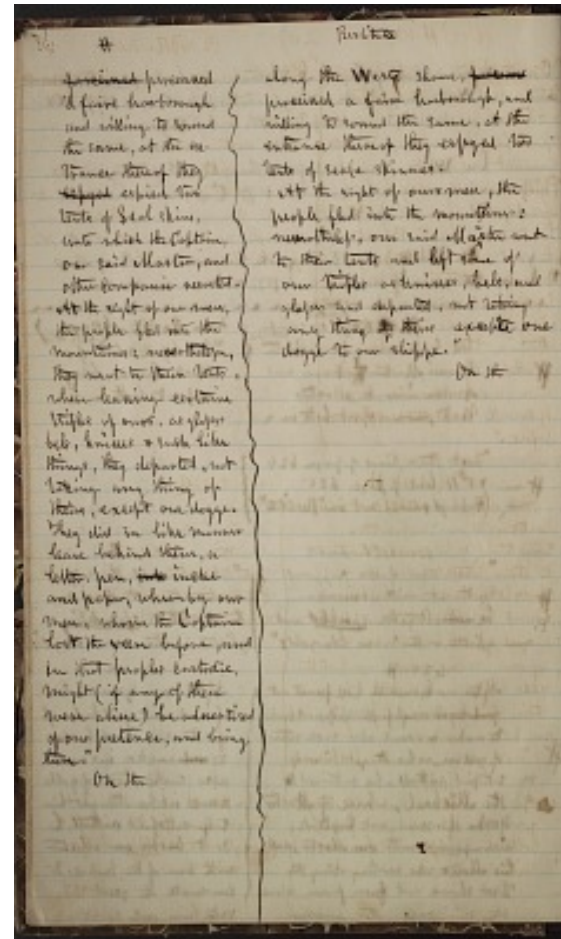 #
~~perceived~~ perceaved
a faire harborough
and willing to sound
the same, at the en
trance thereof they
~~espyed~~ espied two
tents of Seal skins,
unto which the Captain,
our said Master, and
other companie resorted.
At the sight of our men,
the people fled into the
mountains: nevertheless,
they went to their tents,
where leaving certaine
trifles of ours, as glasses
bels, knives & such like
things, they departed, not
taking any thing of
theirs, except one dogge.
They did in like manner
leave behind them, a
letter, pen, ~~ink~~ incke
and paper, whereby our
men, whom the Captain
lost the yeere before, and
in that peoples custodie,
might (if any of them
were alive) be advertised
of our pretence, and being
there."
On the
along the West shore,
perceived a faire harborough, and
willing to sound the same, at the
entrance thereof they espyed two
tents of seale skinnes.
At the sight of our men, the
people fled into the mountains:
nevertheless, our said Master went
to their tents and left some of
our trifles as knives, bels, and
glasses and departed, not taking
any thing of theirs except one
dogge to our shippe."
On the